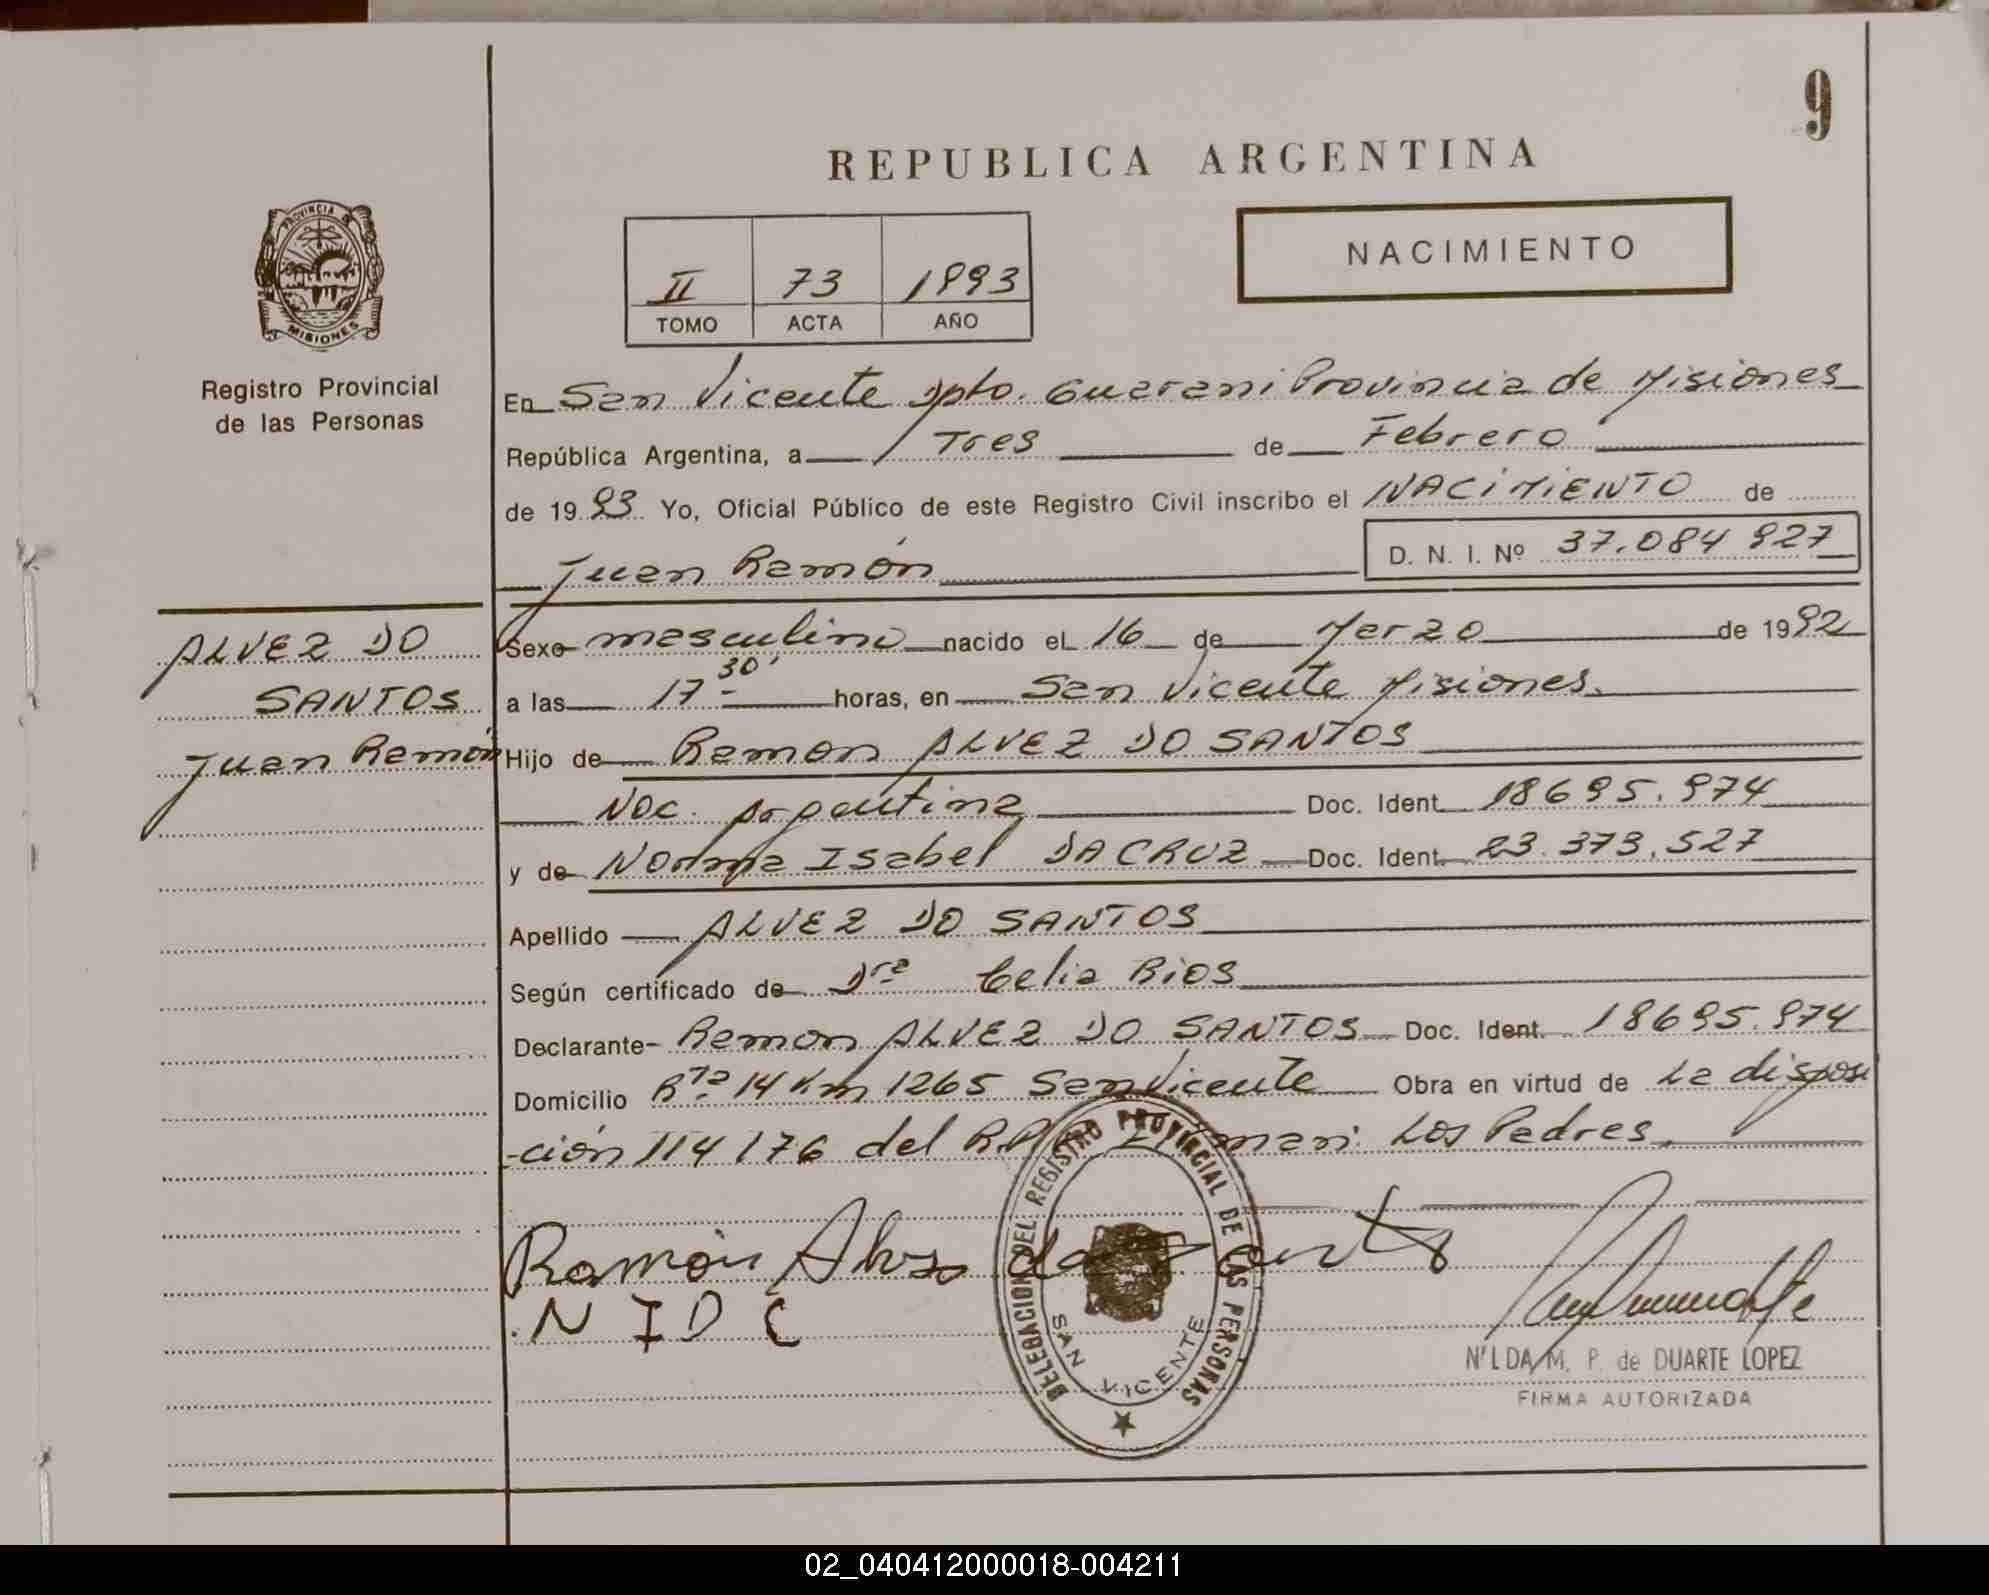 9
REPUBLICA ARGENTINA
NACIMIENTO
II 73 1993
TOMO ACTA AÑO
PROVINCIA DE MISIONES
Registro Provincial
de las Personas
En San Vicente Dpto. Guarani Provincia de Misiones
República Argentina, a Tres de Febrero
de 1993 Yo, Oficial Público de este Registro Civil inscribo el NACIMIENTO de
Juan Ramón D. N. I. Nº 37.084 927
ALVEZ DO
SANTOS
Juan Ramón
Sexo masculino nacido el 16 de Marzo de 1992
a las 17 30' horas, en San Vicente Misiones.
Hijo de Ramon ALVEZ DO SANTOS
Nac. Argentina Doc. Ident. 18695.974
y de Norma Isabel DACRUZ Doc. Ident. 23.373.527
Apellido ALVEZ DO SANTOS
Según certificado de Dra Celia Rios
Declarante Ramon ALVEZ DO SANTOS Doc. Ident. 18695.974
Domicilio Rta 14 Km 1265 San Vicente Obra en virtud de La disposi
-ción 114 176 del Los Padres.
DELEGACION DEL REGISTRO PROVINCIAL DE LAS PERSONAS
SAN VICENTE
Ramón
N I D C
NILDA M. P. de DUARTE LOPEZ
FIRMA AUTORIZADA
02_040412000018-004211